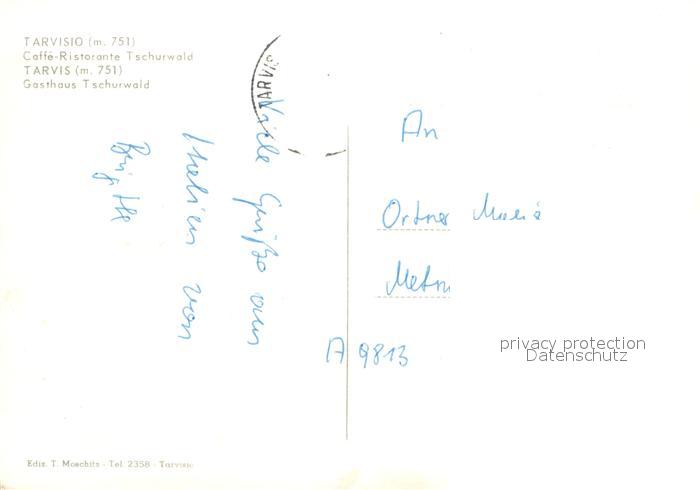 TARVISIO (m. 751)
Caffè-Ristorante Tschurwald
TARVIS (m. 751)
Gasthaus Tschurwald
TARVIS
Viele Grüße aus
Italien von
Brigitte
An
Ortner Maria
A 9813
privacy protection
Datenschutz
Ediz. T. Moschitz - Tel. 2358 - Tarvisio